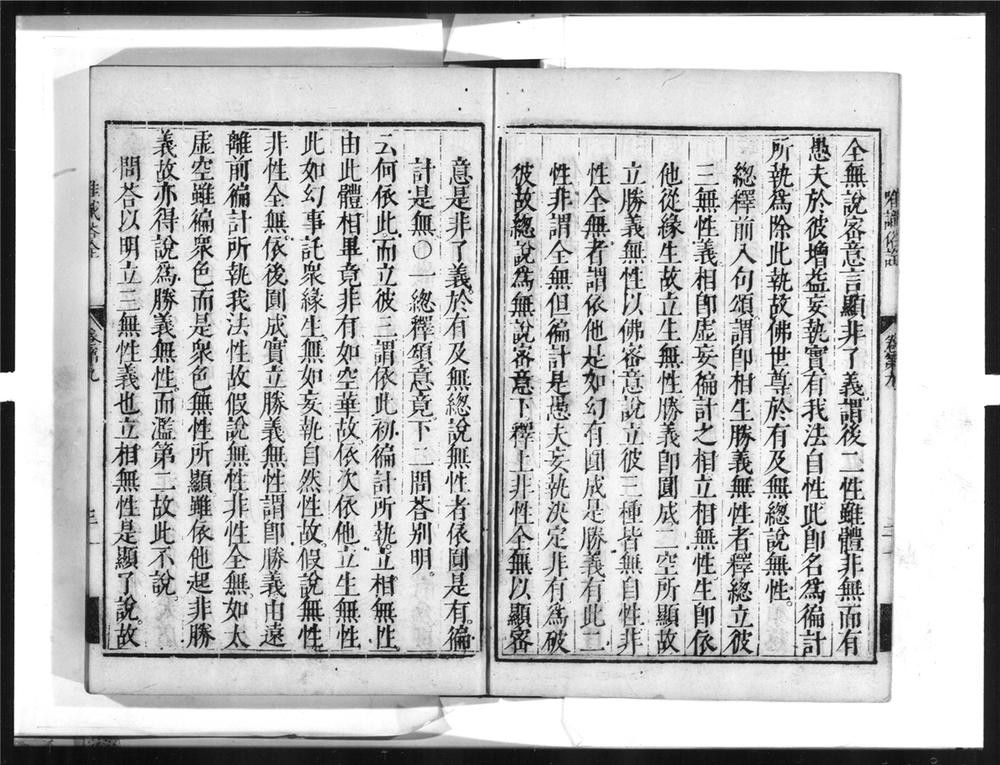 全無說密意言顯非了義謂後二性雖體非無而有
愚夫於彼增益妄執實有我法自性此卽名爲徧計
所執爲除此執故佛世尊於有及無總說無性。
總釋前入句頌謂卽相生勝義無性者釋總立彼
三無性義相卽虛妄徧計之相立相無性生卽依
他從緣生故立生無性勝義卽圓成二空所顯故
立勝義無性以佛密意說立彼三種皆無自性非
性全無者謂依他是如幻有圓成是勝義有此二
性非謂全無但徧計是愚夫妄執決定非有爲破
彼故總說爲無說密意下釋上非性全無以顯密
意是非了義於有及無總說無性者依圓是有徧
計是無○一總釋頌意竟下二問答別明。
云何依此而立彼三謂依此初徧計所執立相無性
由此體相畢竟非有如空華故依次依他立生無性
此如幻事託衆緣生無如妄執自然性故假說無性
非性全無依後圓成實立勝義無性謂卽勝義由遠
離前徧計所執我法性故假說無性非性全無如太
虛空雖徧衆色而是衆色無性所顯雖依他起非勝
義故亦得說爲勝義無性而濫第二故此不說。
問答以明立三無性義也立相無性是顯了說故
卷第九